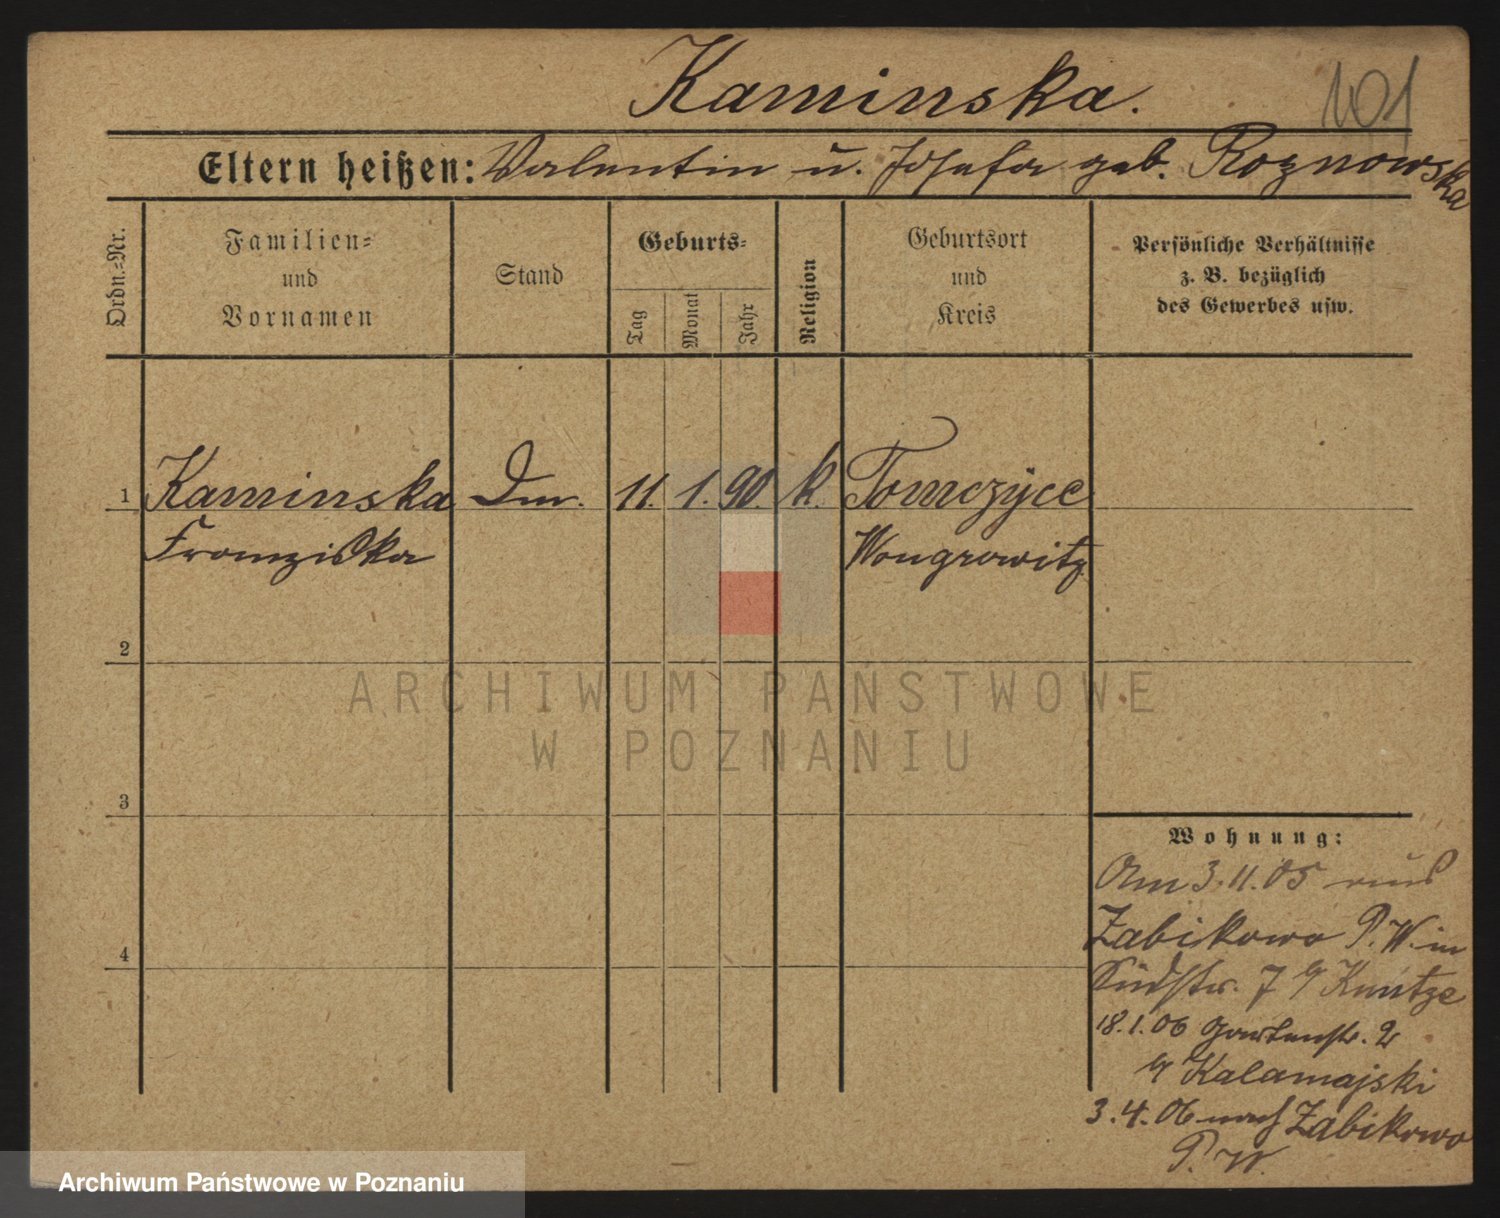 Kaminska.
101
Eltern heißen: Valentin u. Josefa geb. Roznowska
Ordn.-Nr.
Familien-
und
Vornamen
Stand
Geburts-
Tag
Monat
Jahr
Religion
Geburtsort
und
Kreis
Persönliche Verhältnisse
z. B. bezüglich
des Gewerbes usw.
1 Kaminska Dm. 11. 1. 90. k. Tomczyce
Franziska Wongrowitz
2
3
4
Wohnung:
Am 3.11.05 aus
Zabikowo P. W. in
Südstr. 7 Kuntze
18.1.06 Gartenstr. 2
Kalamajski
3.4.06 nach Zabikowo
P. W.
ARCHIWUM PAŃSTWOWE
W POZNANIU
Archiwum Państwowe w Poznaniu